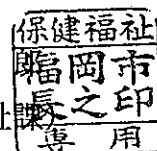 保健福祉
福岡市
長之印
専用